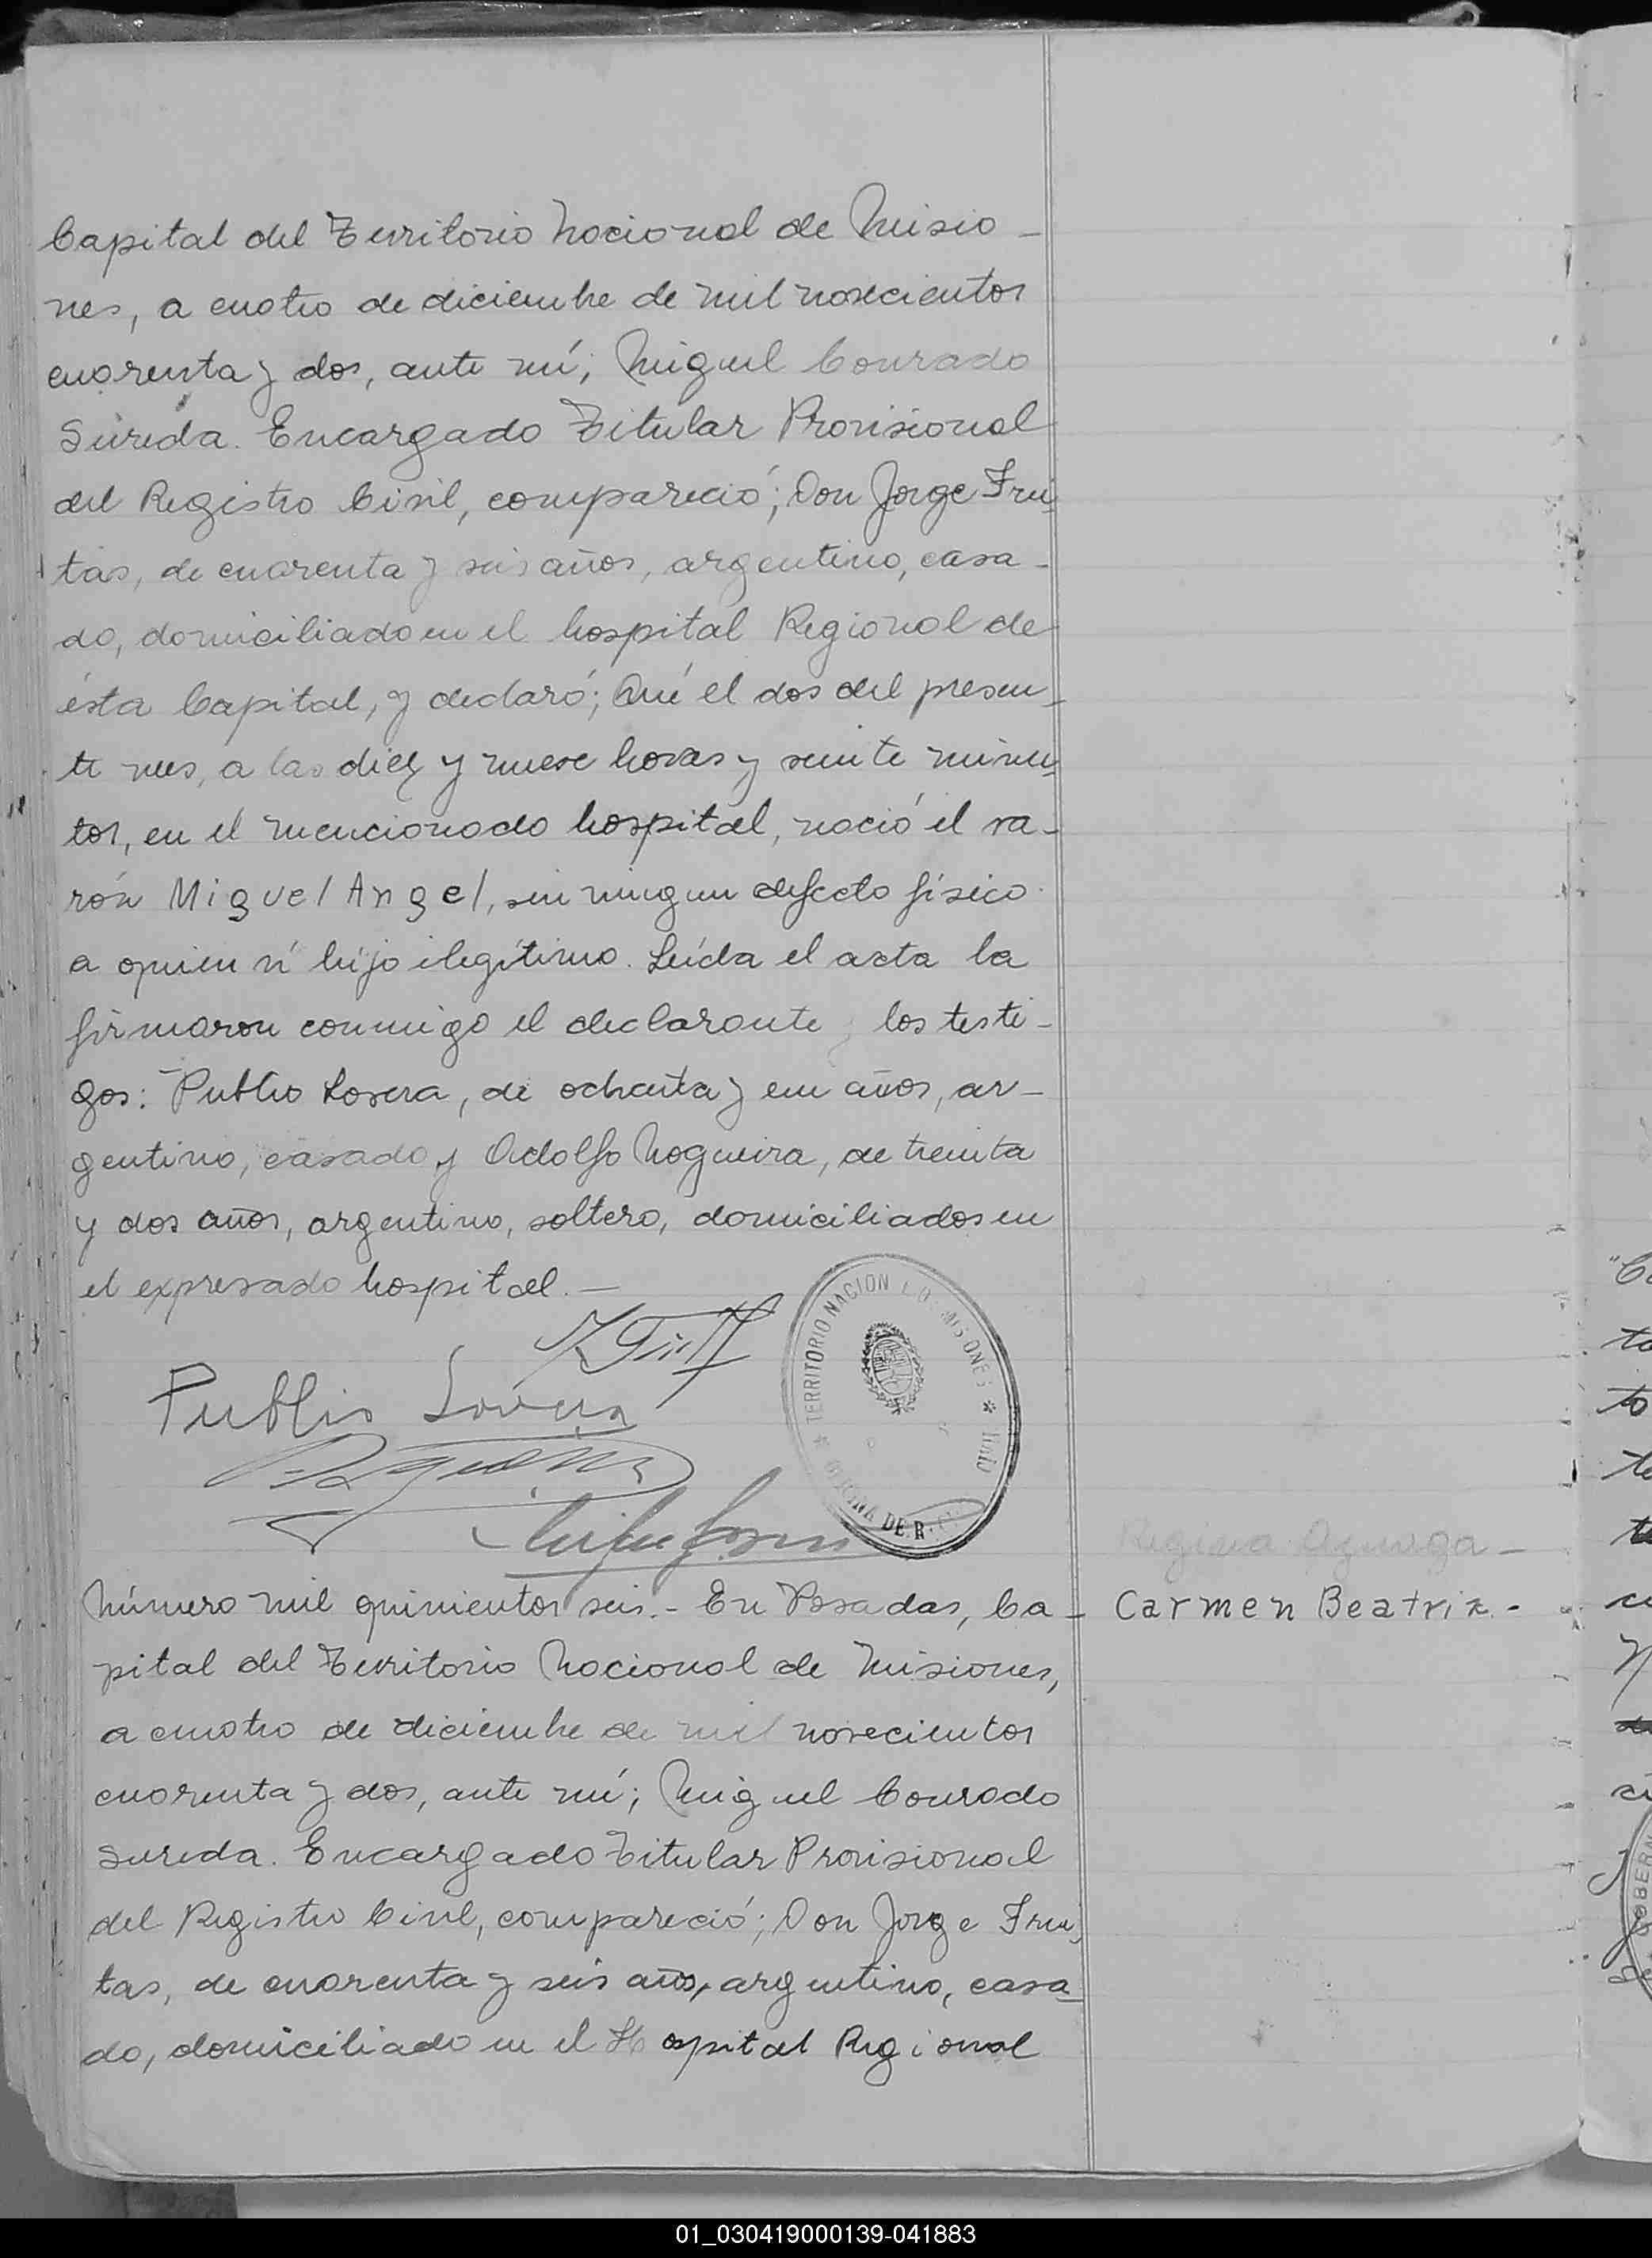 Capital del Territorio Nacional de Misio-
nes, a cuatro de diciembre de mil novecientos
cuarenta y dos, ante mí; Miguel Conrado
Sureda. Encargado Titular Provisional
del Registro Civil, compareció; Don Jorge Frui-
tas, de cuarenta y seis años, argentino, casa-
do, domiciliado en el hospital Regional de
ésta Capital, y declaró; Qué el dos del presen-
te mes, a las diez y nueve horas y veinte minu-
tos, en el mencionado hospital, nació el va-
rón Miguel Angel, sin ningun defecto físico
a quien ví hijo ilegítimo. Leída el acta la
firmaron conmigo el declarante y los testi-
gos: Publio Lovera, de ochenta y un años, ar-
gentino, casado y Adolfo Nogueira, de treinta
y dos años, argentino, soltero, domiciliados en
el expresado hospital.-
TERRITORIO NACION MISIONES
DE R.
Publio Lovera
Regina
Número mil quinientos seis.- En Posadas, Ca-
Carmen Beatriz.-
pital del Territorio Nacional de Misiones,
a cuatro de diciembre de mil novecientos
cuarenta y dos, ante mí; Miguel Conrado
Sureda. Encargado Titular Provisional
del Registro Civil, compareció; Don Jorge Frui-
tas, de cuarenta y seis años, argentino, casa-
do, domiciliado en el Hospital Regional
01_030419000139-041883